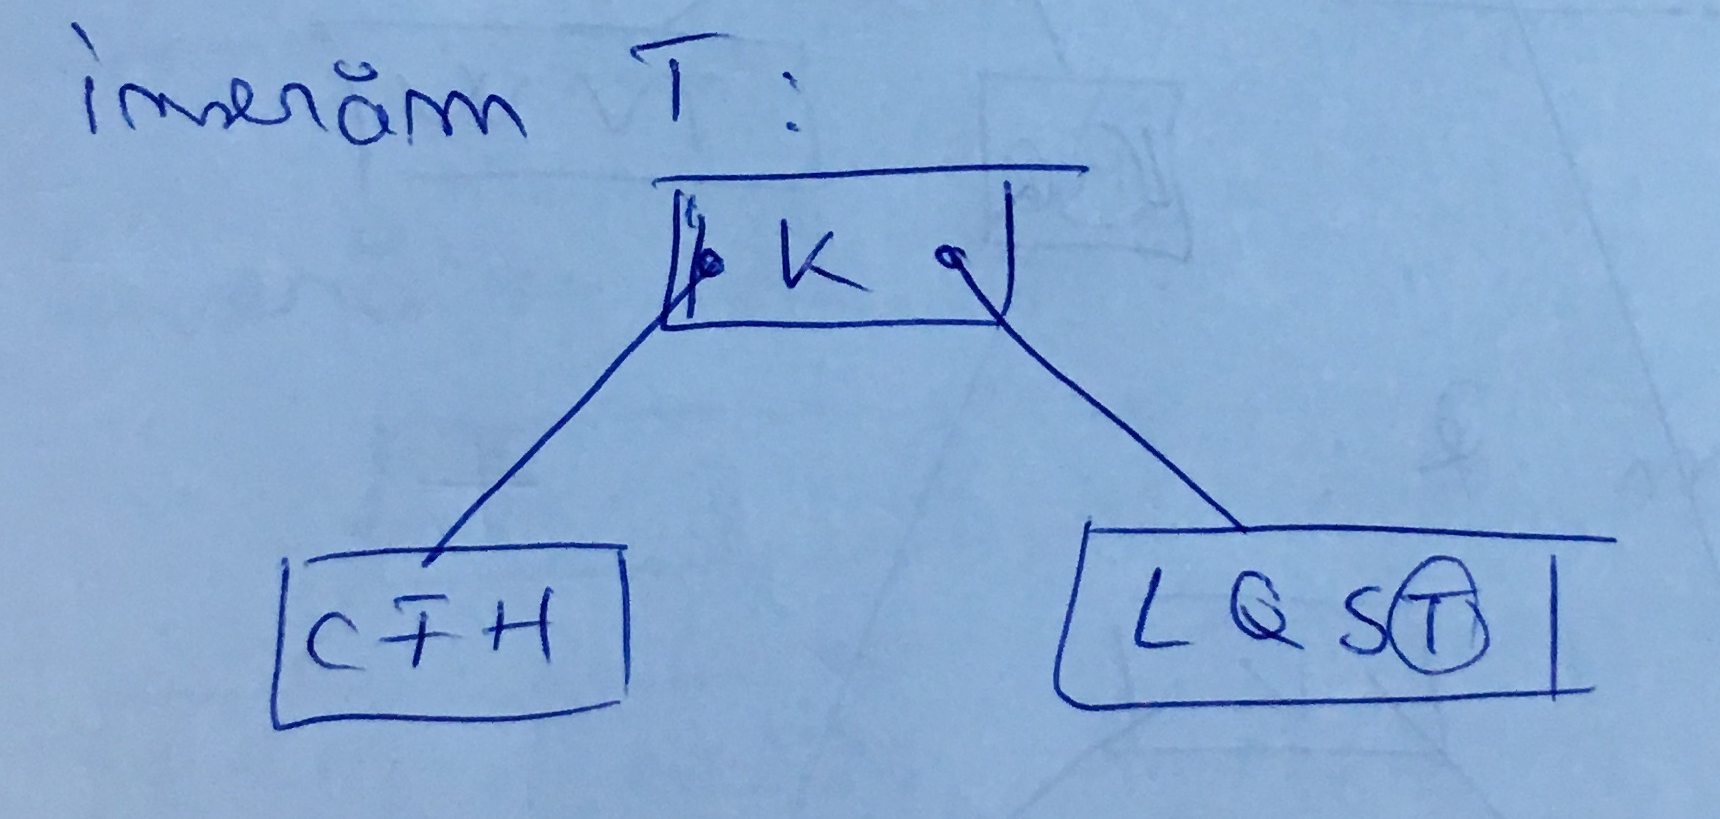 inserăm T:
K
C F H
L Q S T